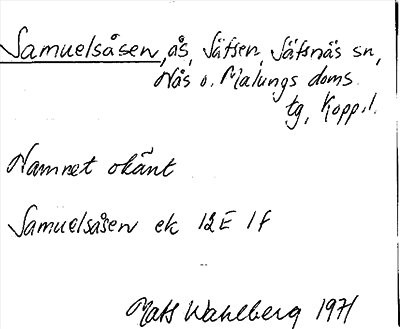 Samuelsåsen, ås, Säfsen, Säfsnäs sn,
Nås o. Malungs doms.
tg, Kopp.l.
Namnet okänt
Samuelsåsen ek 12E 1f
Mats Wahlberg 1971